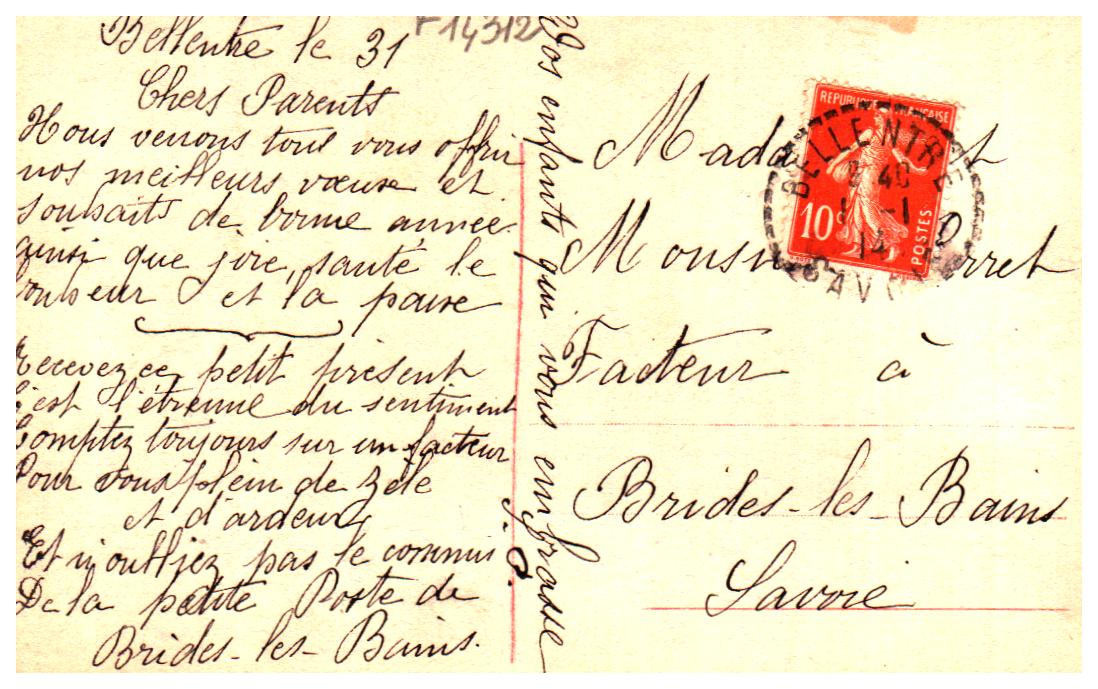 Bellentre le 31
F 14312
Chers Parents
Nous venons tous vous offrir
nos meilleurs vœux et
souhaits de bonne année
ainsi que joie, santé le
bonheur et la paix
Recevez ce petit présent
C'est l'étrenne du sentiment
Comptez toujours sur un facteur
Pour vous plein de zèle
et d'ardeur
Et n'oubliez pas le commis
De la petite Poste de
Brides-les-Bains.
Vos enfants qui vous embrasse
Madame et
Monsieur Perret
Facteur à
Brides-les-Bains
Savoie
REPUBLIQUE FRANÇAISE
10c
POSTES
BELLENTRE
8 40
1 -1
14
SAVOIE